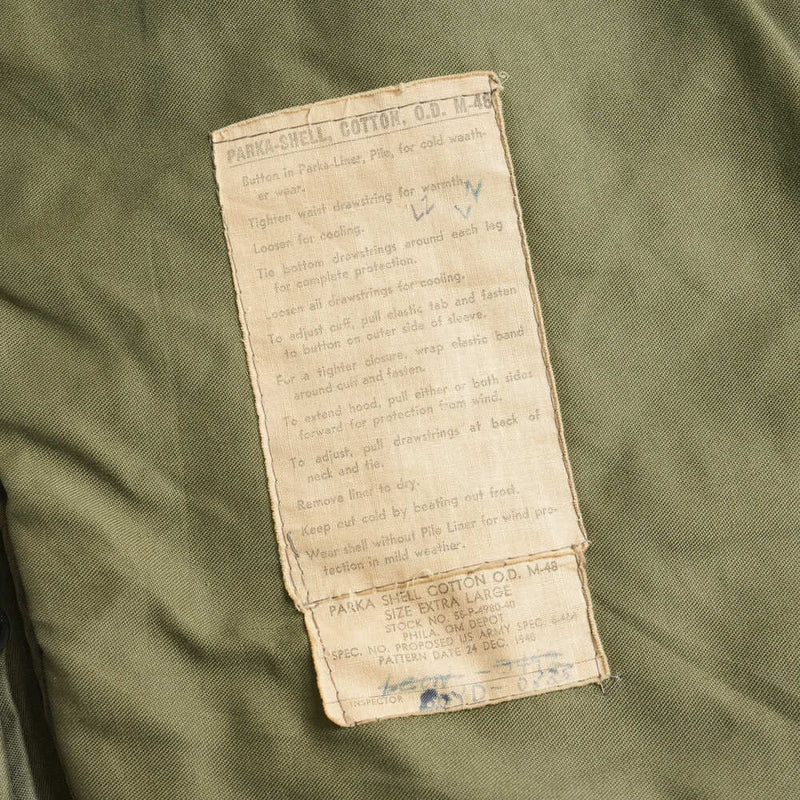 PARKA-SHELL, COTTON, O.D. M-48
Button in Parka-Liner, Pile, for cold weath-
er wear.
Tighten waist drawstring for warmth.
Loosen for cooling.
Tie bottom drawstrings around each leg
for complete protection.
Loosen all drawstrings for cooling.
To adjust cuff, pull elastic tab and fasten
to button on outer side of sleeve.
For a tighter closure, wrap elastic band
around cuff and fasten.
To extend hood, pull either or both sides
forward for protection from wind.
To adjust, pull drawstrings at back of
neck and tie.
Remove liner to dry.
Keep out cold by beating out frost.
Wear shell without Pile Liner for wind pro-
tection in mild weather.
PARKA SHELL COTTON O.D. M-48
SIZE EXTRA LARGE
STOCK NO. 55-P-4980-40
PHILA. QM DEPOT
SPEC. NO. PROPOSED US ARMY SPEC.
PATTERN DATE 24 DEC. 1948
INSPECTOR